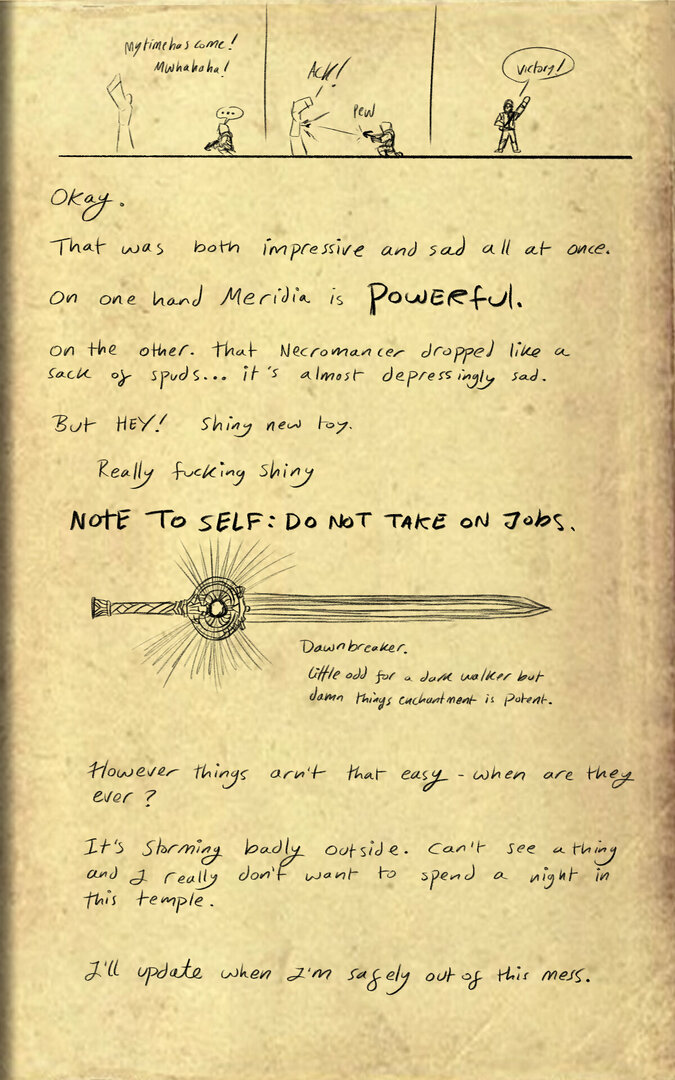 My time has come!
Mwhahaha!
...
ACK!
Pew
Victory!
Okay.
That was both impressive and sad all at once.
On one hand Meridia is POWERFUL.
On the other. That Necromancer dropped like a
sack of spuds... it's almost depressingly sad.
But HEY! Shiny new toy.
Really fucking shiny
NOTE TO SELF: DO NOT TAKE ON JOBS.
Dawnbreaker.
Little odd for a dark walker but
damn things enchantment is potent.
However things arn't that easy - when are they
ever?
It's storming badly outside. Can't see a thing
and I really don't want to spend a night in
this temple.
I'll update when I'm safely out of this mess.